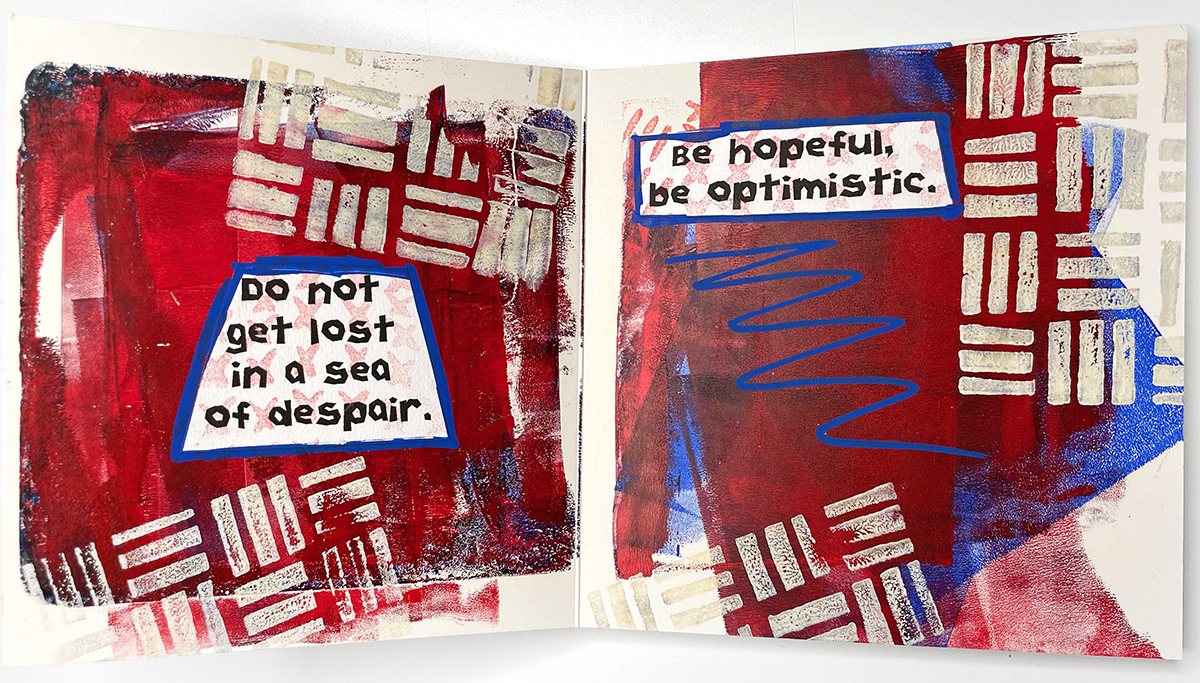 Do not
get lost
in a sea
of despair.
Be hopeful,
be optimistic.